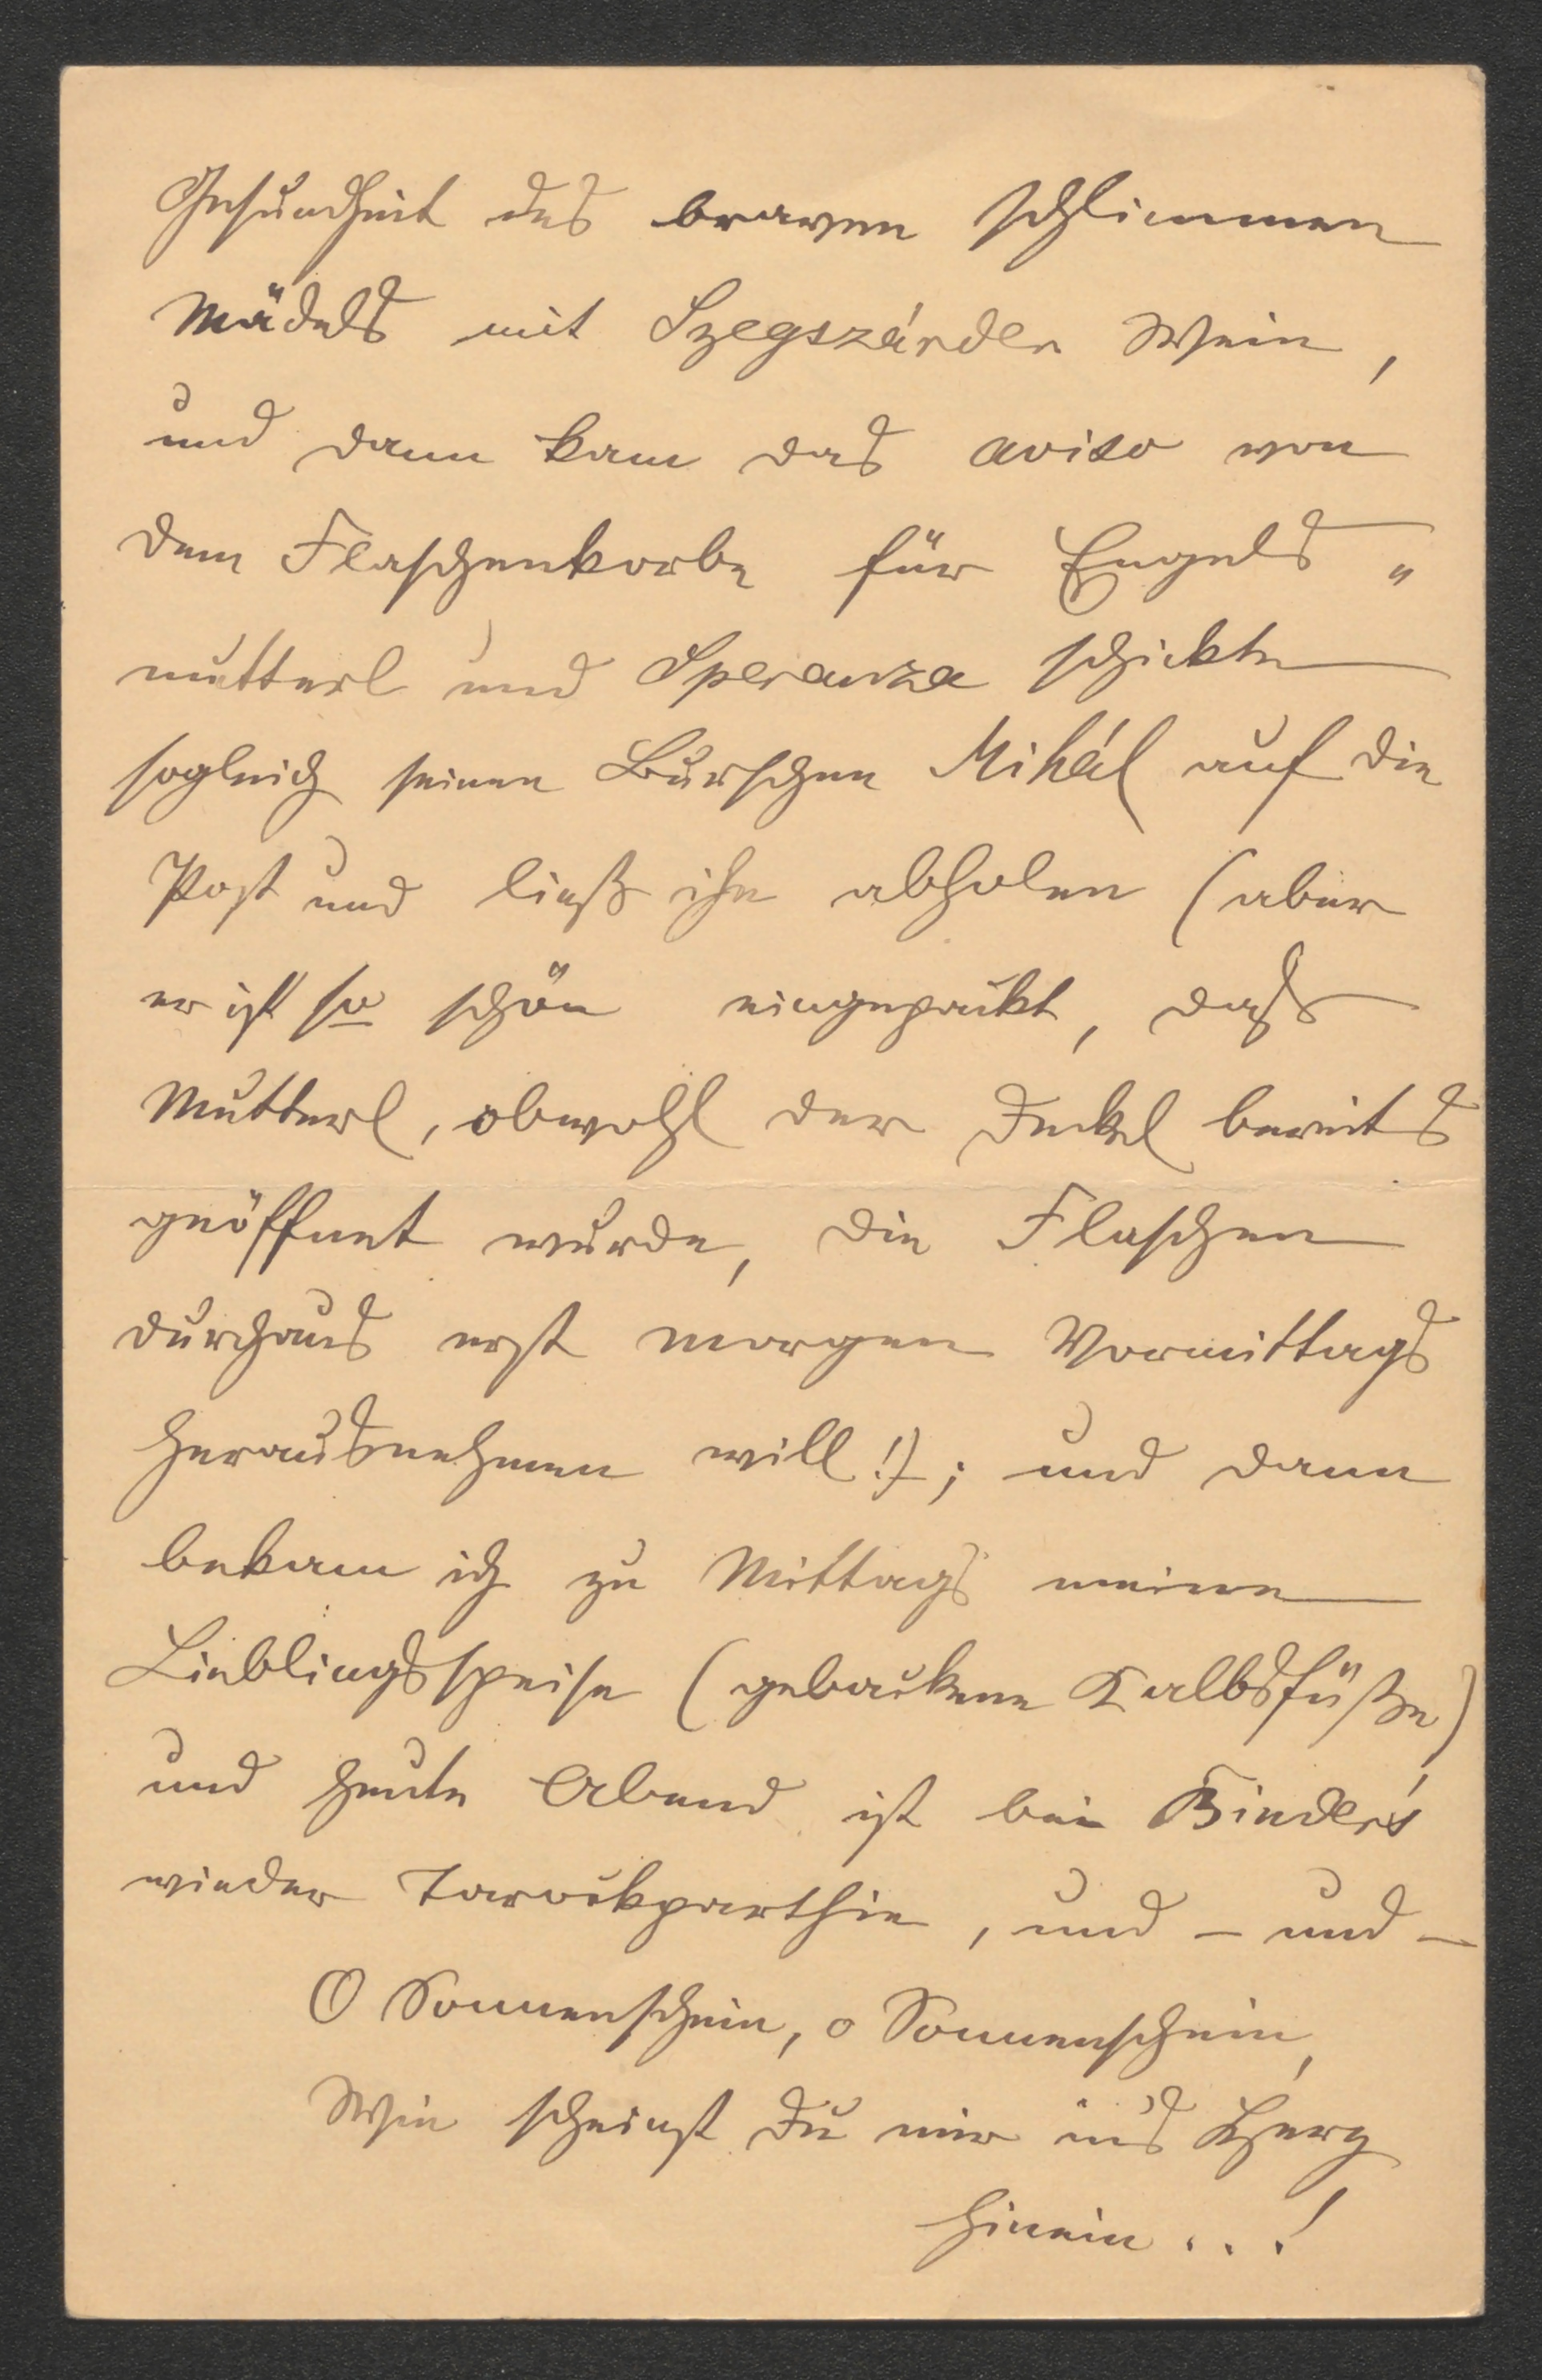 Gesundheit des braven schlimmen
Mädels mit Szegszárder Wein,
und dann kam das aviso von
dem Flaschenkorbe für Engels„
mutterl und Speranza schickte
sogleich seinen Burschen Mihál auf die
Post und ließ ihn abholen (aber
er ist so schön eingepackt, daß
Mutterl, obwohl der Deckel bereits
geöffnet wurde, die Flaschen
durchaus erst morgen Vormittags
herausnehmen will!); und dann
bekam ich zu Mittags meine
Lieblingsspeise (gebackene Kalbsfüße)
und heute Abend ist bei Binder's
wieder Tarockparthie, und – und –
O Sonnenschein, o Sonnenschein,
Wie scheinst Du mir in's Herz
hinein...!